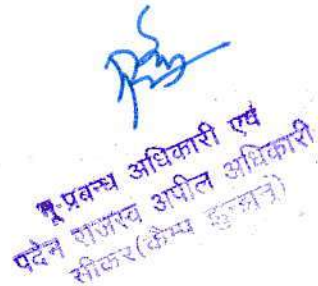 भू.प्रबन्ध अधिकारी एवं
पदेन राजस्व अपील अधिकारी
सीकर(कैम्प झुन्झुनू)